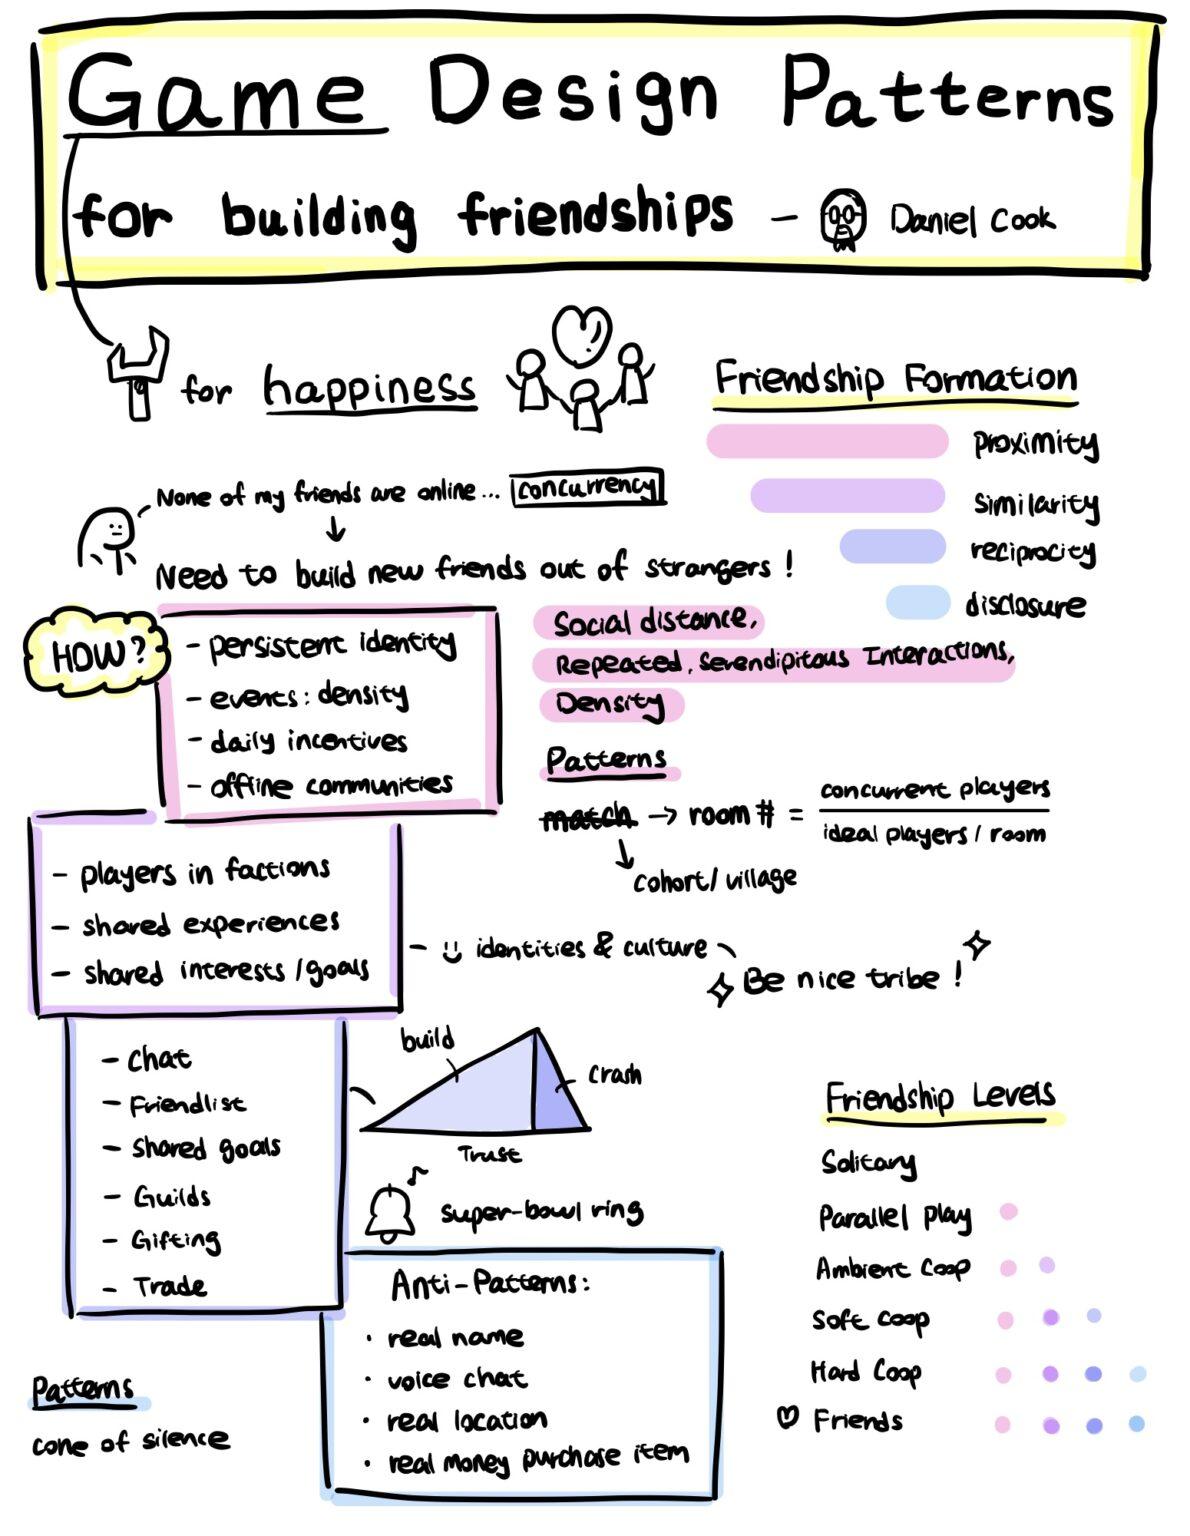 Game Design Patterns
for building friendships – Daniel Cook
for happiness
Friendship Formation
proximity
similarity
reciprocity
disclosure
None of my friends are online... concurrency
Need to build new friends out of strangers!
HOW?
- persistent identity
- events: density
- daily incentives
- offline communities
Social distance,
Repeated, Serendipitous Interactions,
Density
Patterns
match → room # = concurrent players
ideal players / room
cohort / village
- players in factions
- shared experiences
- shared interests / goals
- identities & culture
Be nice tribe!
- Chat
- Friendlist
- Shared goals
- Guilds
- Gifting
- Trade
build
crash
Trust
super-bowl ring
Anti-Patterns:
· real name
· voice chat
· real location
· real money purchase item
Patterns
cone of silence
Friendship Levels
Solitary
Parallel Play
Ambient Coop
Soft Coop
Hard Coop
Friends